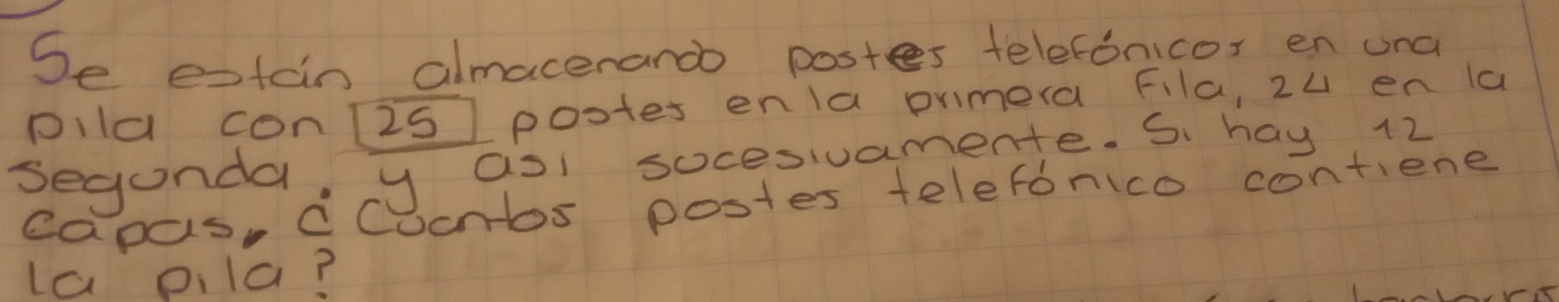 Se están almacenando postes telefónicos en una
pila con 25 postes en la primera fila, 24 en la
segunda. y asi sucesivamente. Si hay 12
capas, ¿Cuantos postes telefónico contiene
la pila?